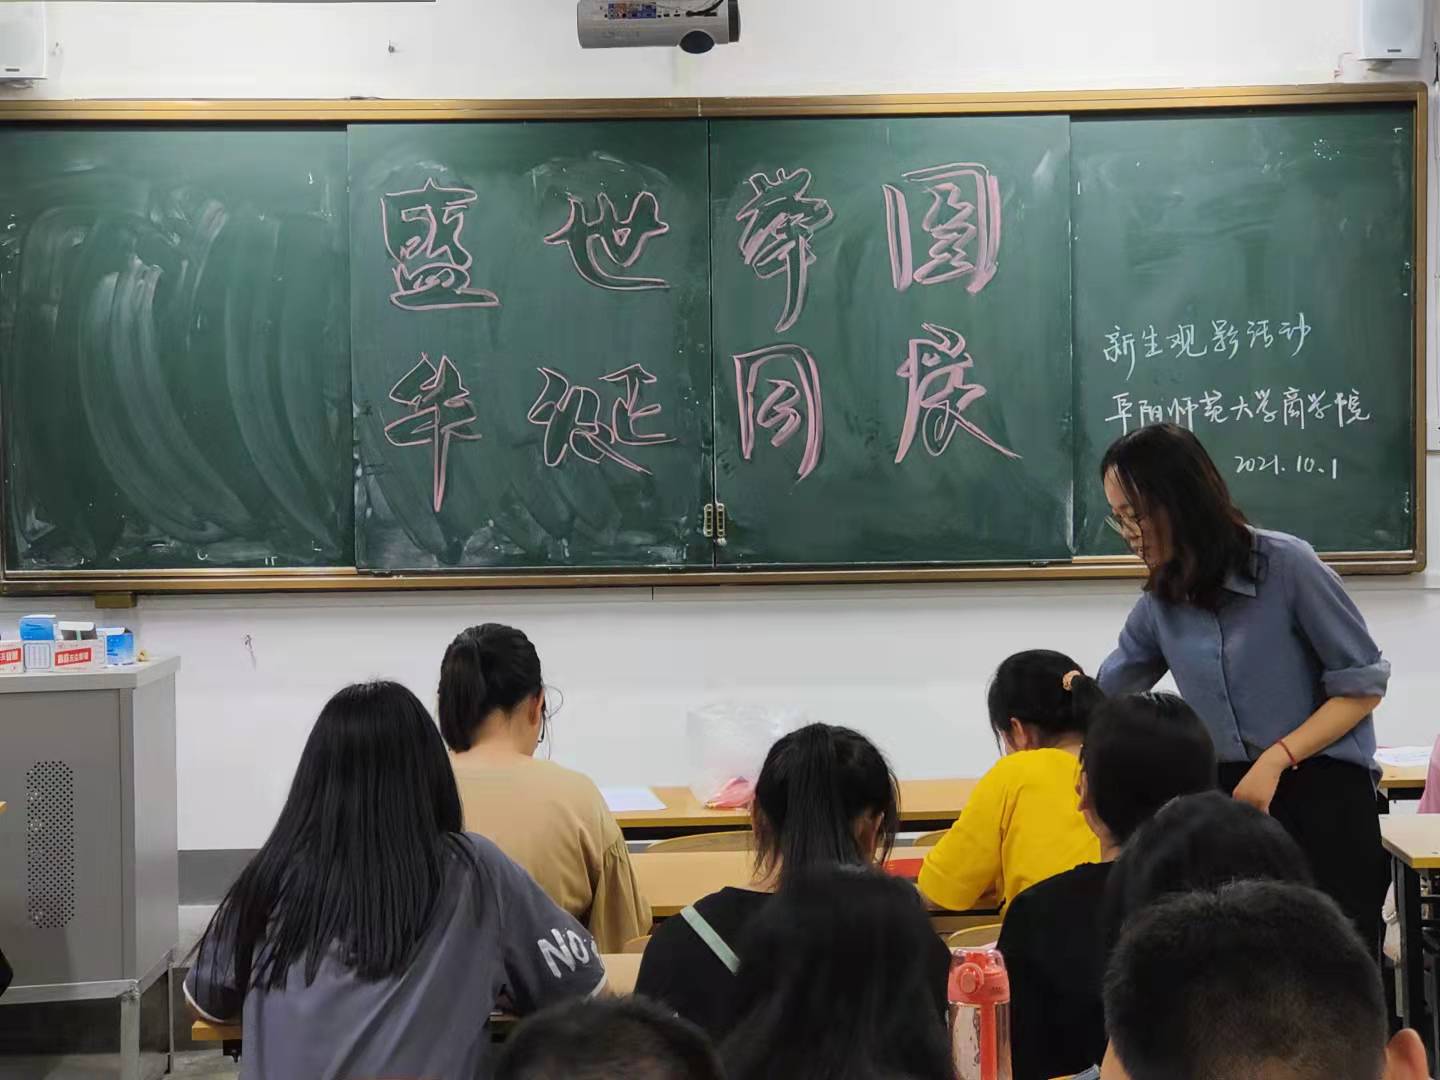 盛世举图
华诞同展
新生观影活动
阜阳师范大学商学院
2021.10.1
NO